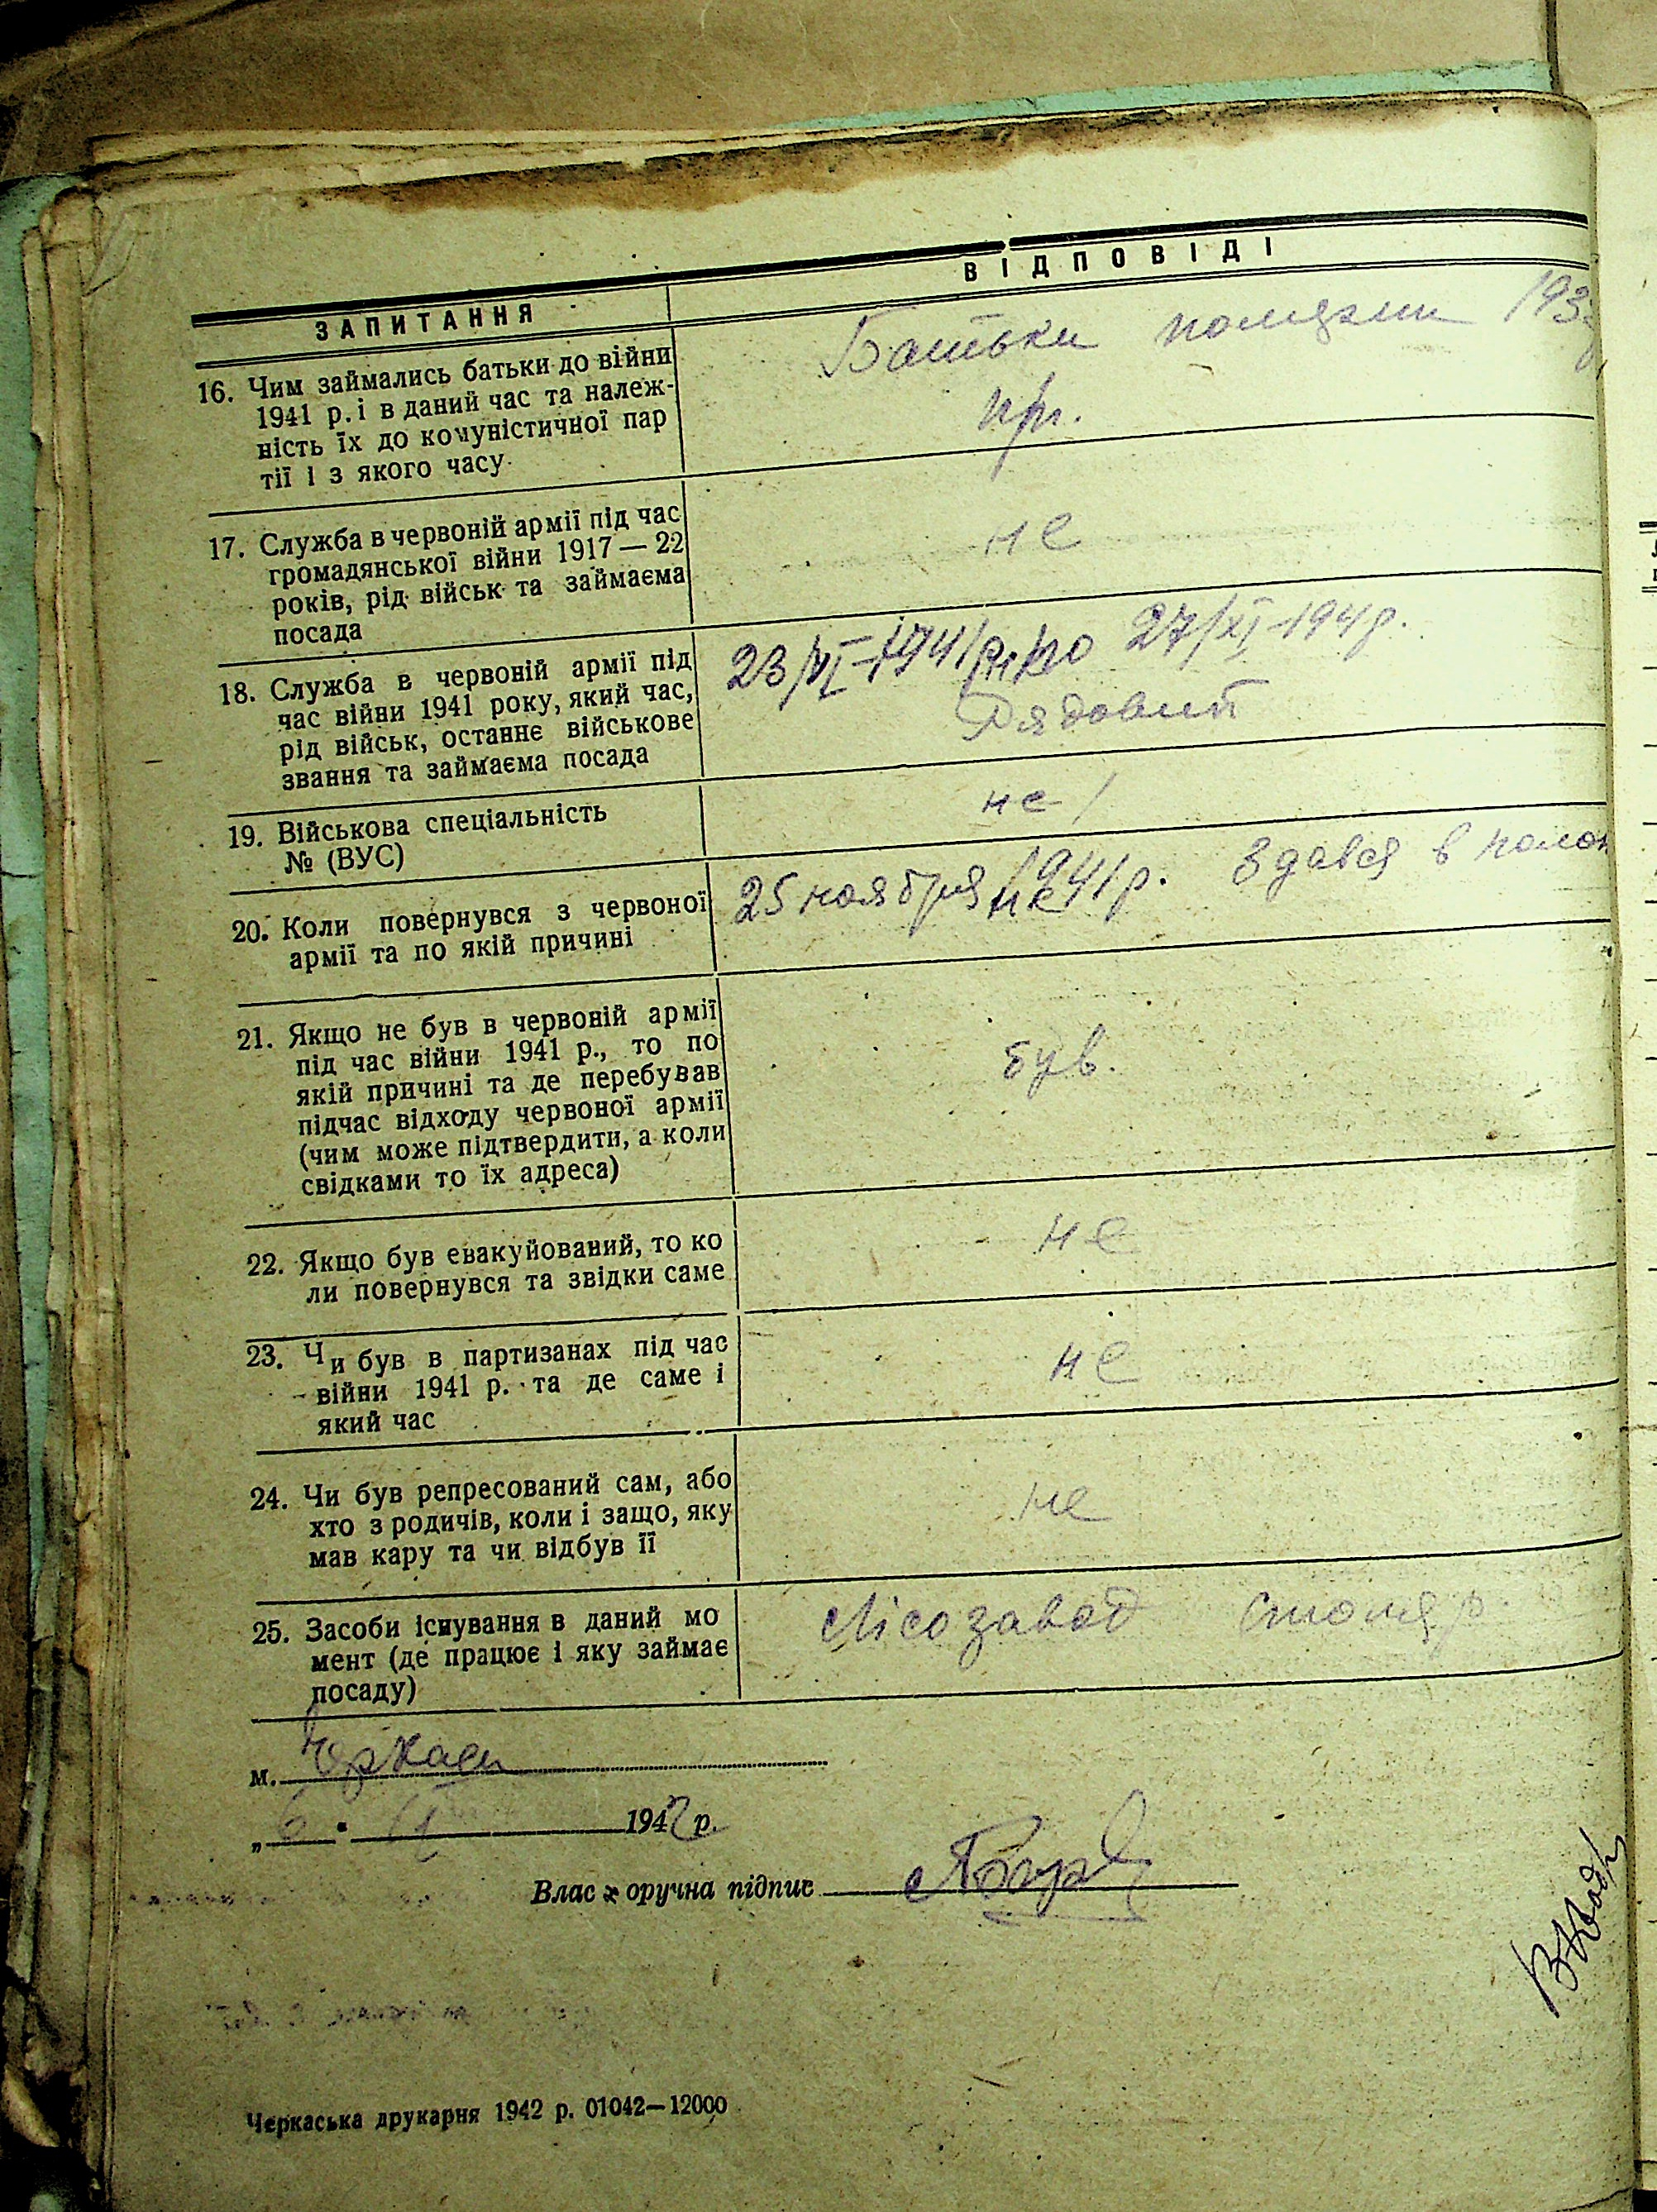 ЗАПИТАННЯ
ВІДПОВІДІ
16. Чим займались батьки до війни
1941 р. і в даний час та належ-
ність їх до комуністичної пар
тії і з якого часу.
Батьки 193
17. Служба в червоній армії під час
громадянської війни 1917 — 22
років, рід військ та займаєма
посада
не
18. Служба в червоній армії під
час війни 1941 року, який час,
рід військ, останнє військове
звання та займаєма посада
23/VI-1941р. по 27/XI-194 р.
Рядовий
19. Військова спеціальність
№ (ВУС)
не
20. Коли повернувся з червоної
армії та по якій причині
25 ноября 1941р. Здався в полон
21. Якщо не був в червоній армії
під час війни 1941 р., то по
якій причині та де перебував
підчас відходу червоної армії
(чим може підтвердити, а коли
свідками то їх адреса)
був.
22. Якщо був евакуйований, то ко
ли повернувся та звідки саме
не
23. Чи був в партизанах під час
війни 1941 р. та де саме і
який час
не
24. Чи був репресований сам, або
хто з родичів, коли і защо, яку
мав кару та чи відбув її
не
25. Засоби існування в даний мо
мент (де працює і яку займає
посаду)
Лісозавод столяр
м. Черкаси
„ 6 " 1942 р.
Влас оручна підпис
Черкаська друкарня 1942 р. 01042—12000